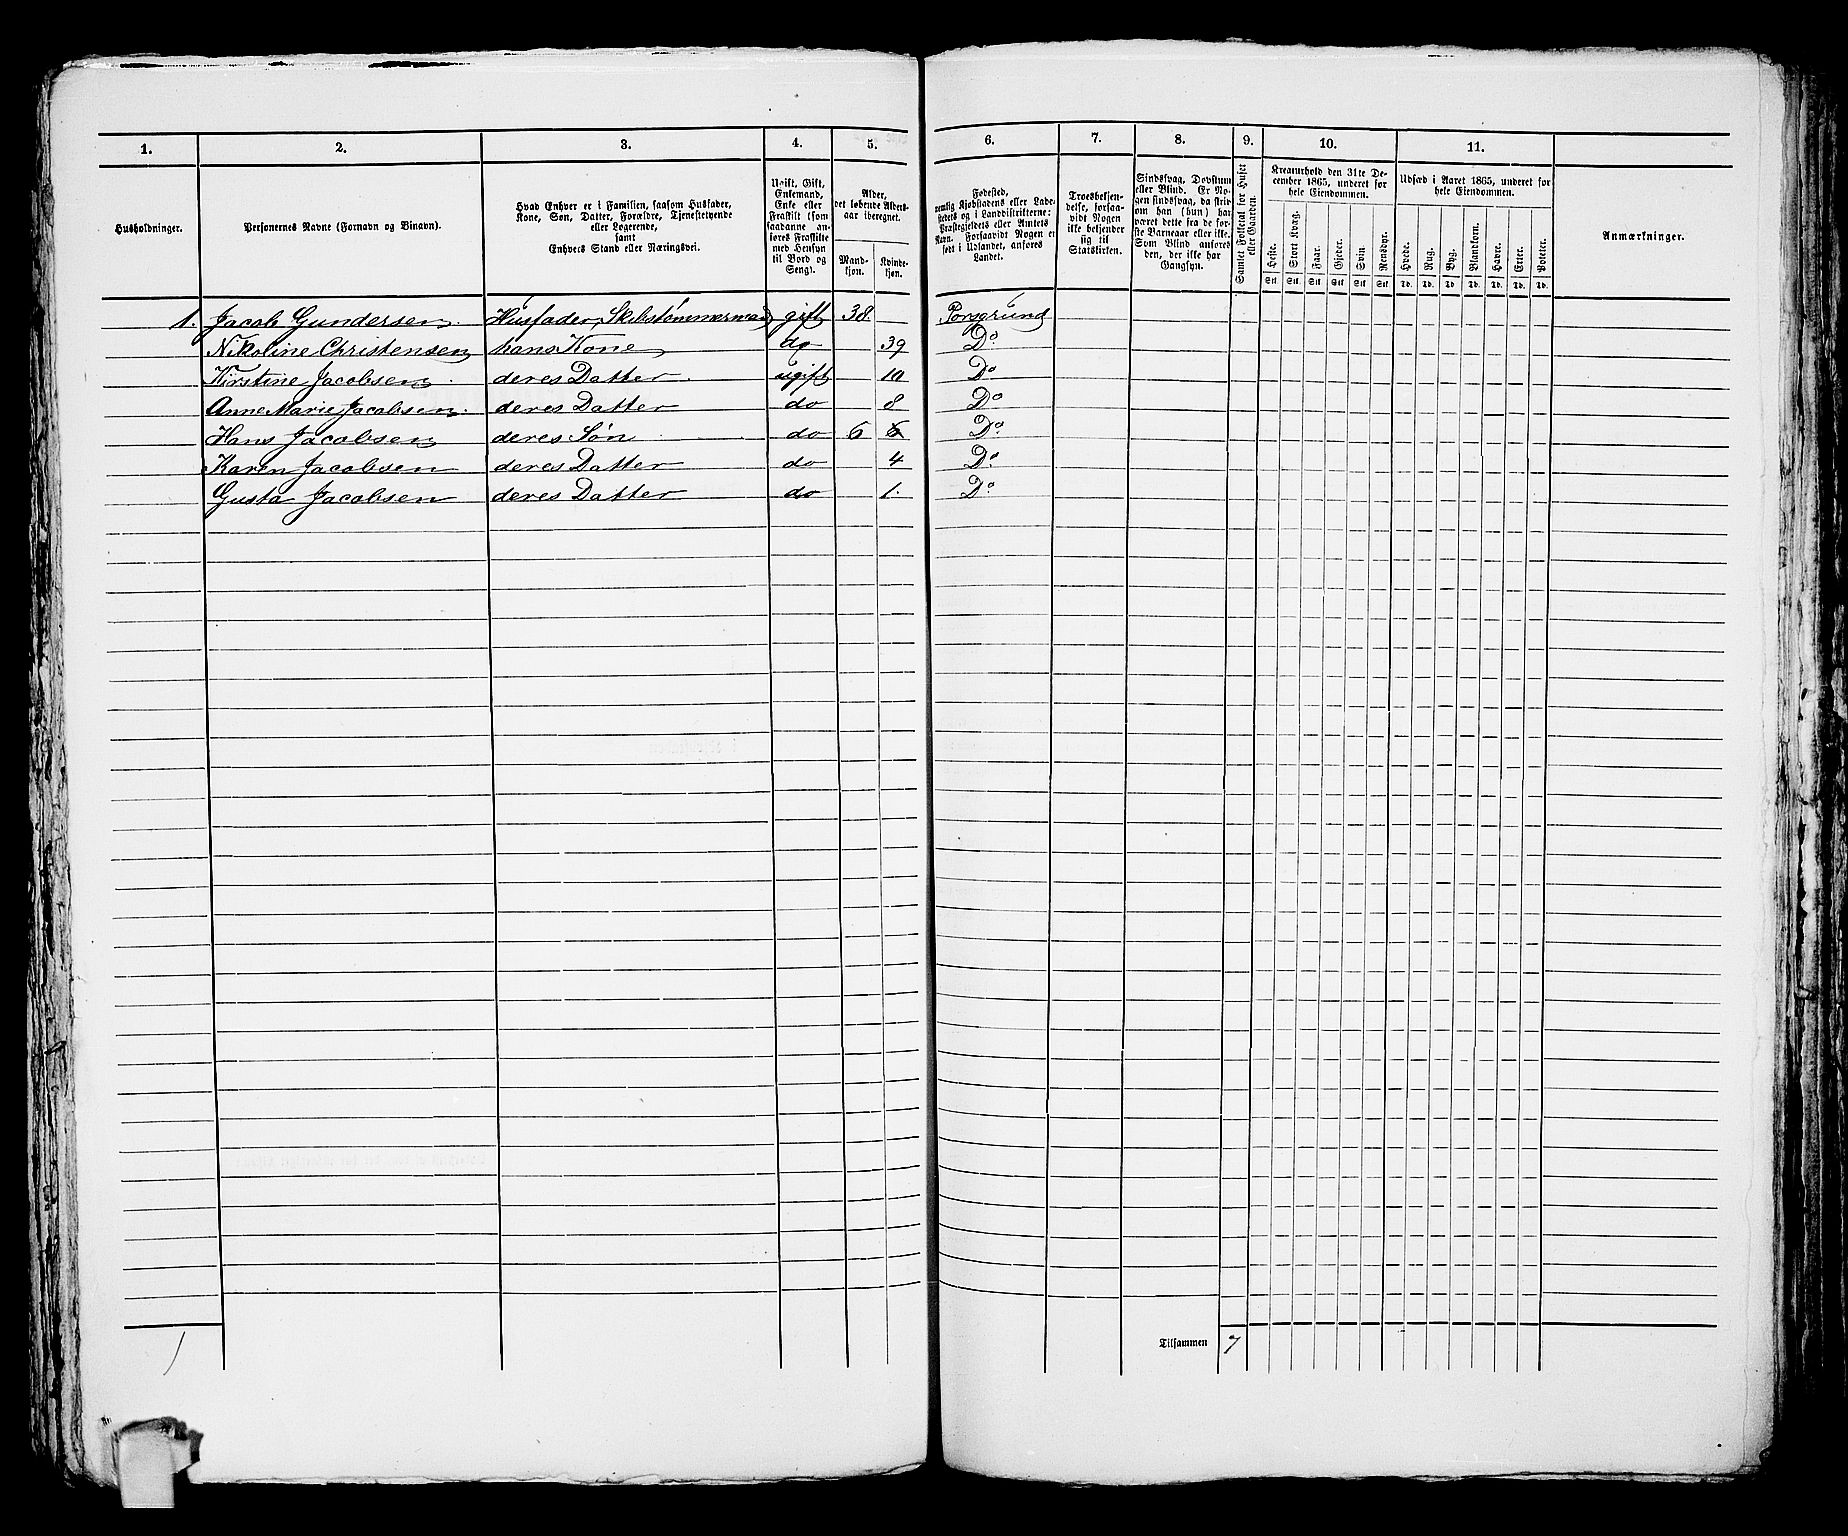 1. 2. 3. 4. 5. 6. 7. 8. 9. 10. 11.
Husholdninger.
Personernes Navne (Fornavn og Binavn).
Hvad Enhver er i Familien, saasom Husfader,
Kone, Søn, Datter, Forældre, Tjenestetyende
eller Logerende,
samt
Enhvers Stand eller Næringsvei.
Ugift, Gift,
Enkemand,
Enke eller
Fraskilt (som
saadanne an-
føres Fraskilte
med Hensyn
til Bord og
Seng).
Alder,
det løbende Alders-
aar iberegnet.
Mand-
kjøn.
Kvinde-
kjøn.
Fødested,
nemlig Kjøbstadens eller Lade-
stedets og i Landdistrikterne:
Præstegjeldets eller Amtets
Navn. Forsaavidt Nogen er
født i Udlandet, anføres
Landet.
Troesbekjen-
delse, forsaa-
vidt Nogen
ikke bekjender
sig til
Statskirken.
Sindssvag, Døvstum
eller Blind. Er No-
gen sindssvag, da striv-
om han (hun) har
været dette fra de før-
ste Barneaar eller ikke.
Som Blind anføres
den, der ikke har
Gangsyn.
Samlet Folketal for Huset
eller Gaarden.
Kreaturhold den 31te De-
cember 1865, underet for
hele Eiendommen.
Heste. Stort Kvæg. Faar. Gjeder. Svin. Rensdyr.
Stk Stk Stk Stk Stk Stk
Udsæd i Aaret 1865, underet for
hele Eiendommen.
Hvede. Rug. Byg. Blandkorn. Havre. Erter. Poteter.
Td. Td. Td. Td. Td. Td. Td.
Anmærkninger.
1. Jacob Gundersen. Husfader, Skibstømmermand gift 38. Porsgrund
Nikoline Christensen hans Kone do 39 Do
Kirstine Jacobsen deres Datter ugift 10 Do
Anne Marie Jacobsen. deres Datter do 8 Do
Hans Jacobsen deres Søn do 6 6 Do
Karen Jacobsen deres Datter do 4 Do
Gusta Jacobsen deres Datter do 1. Do
1 Tilsammen 7